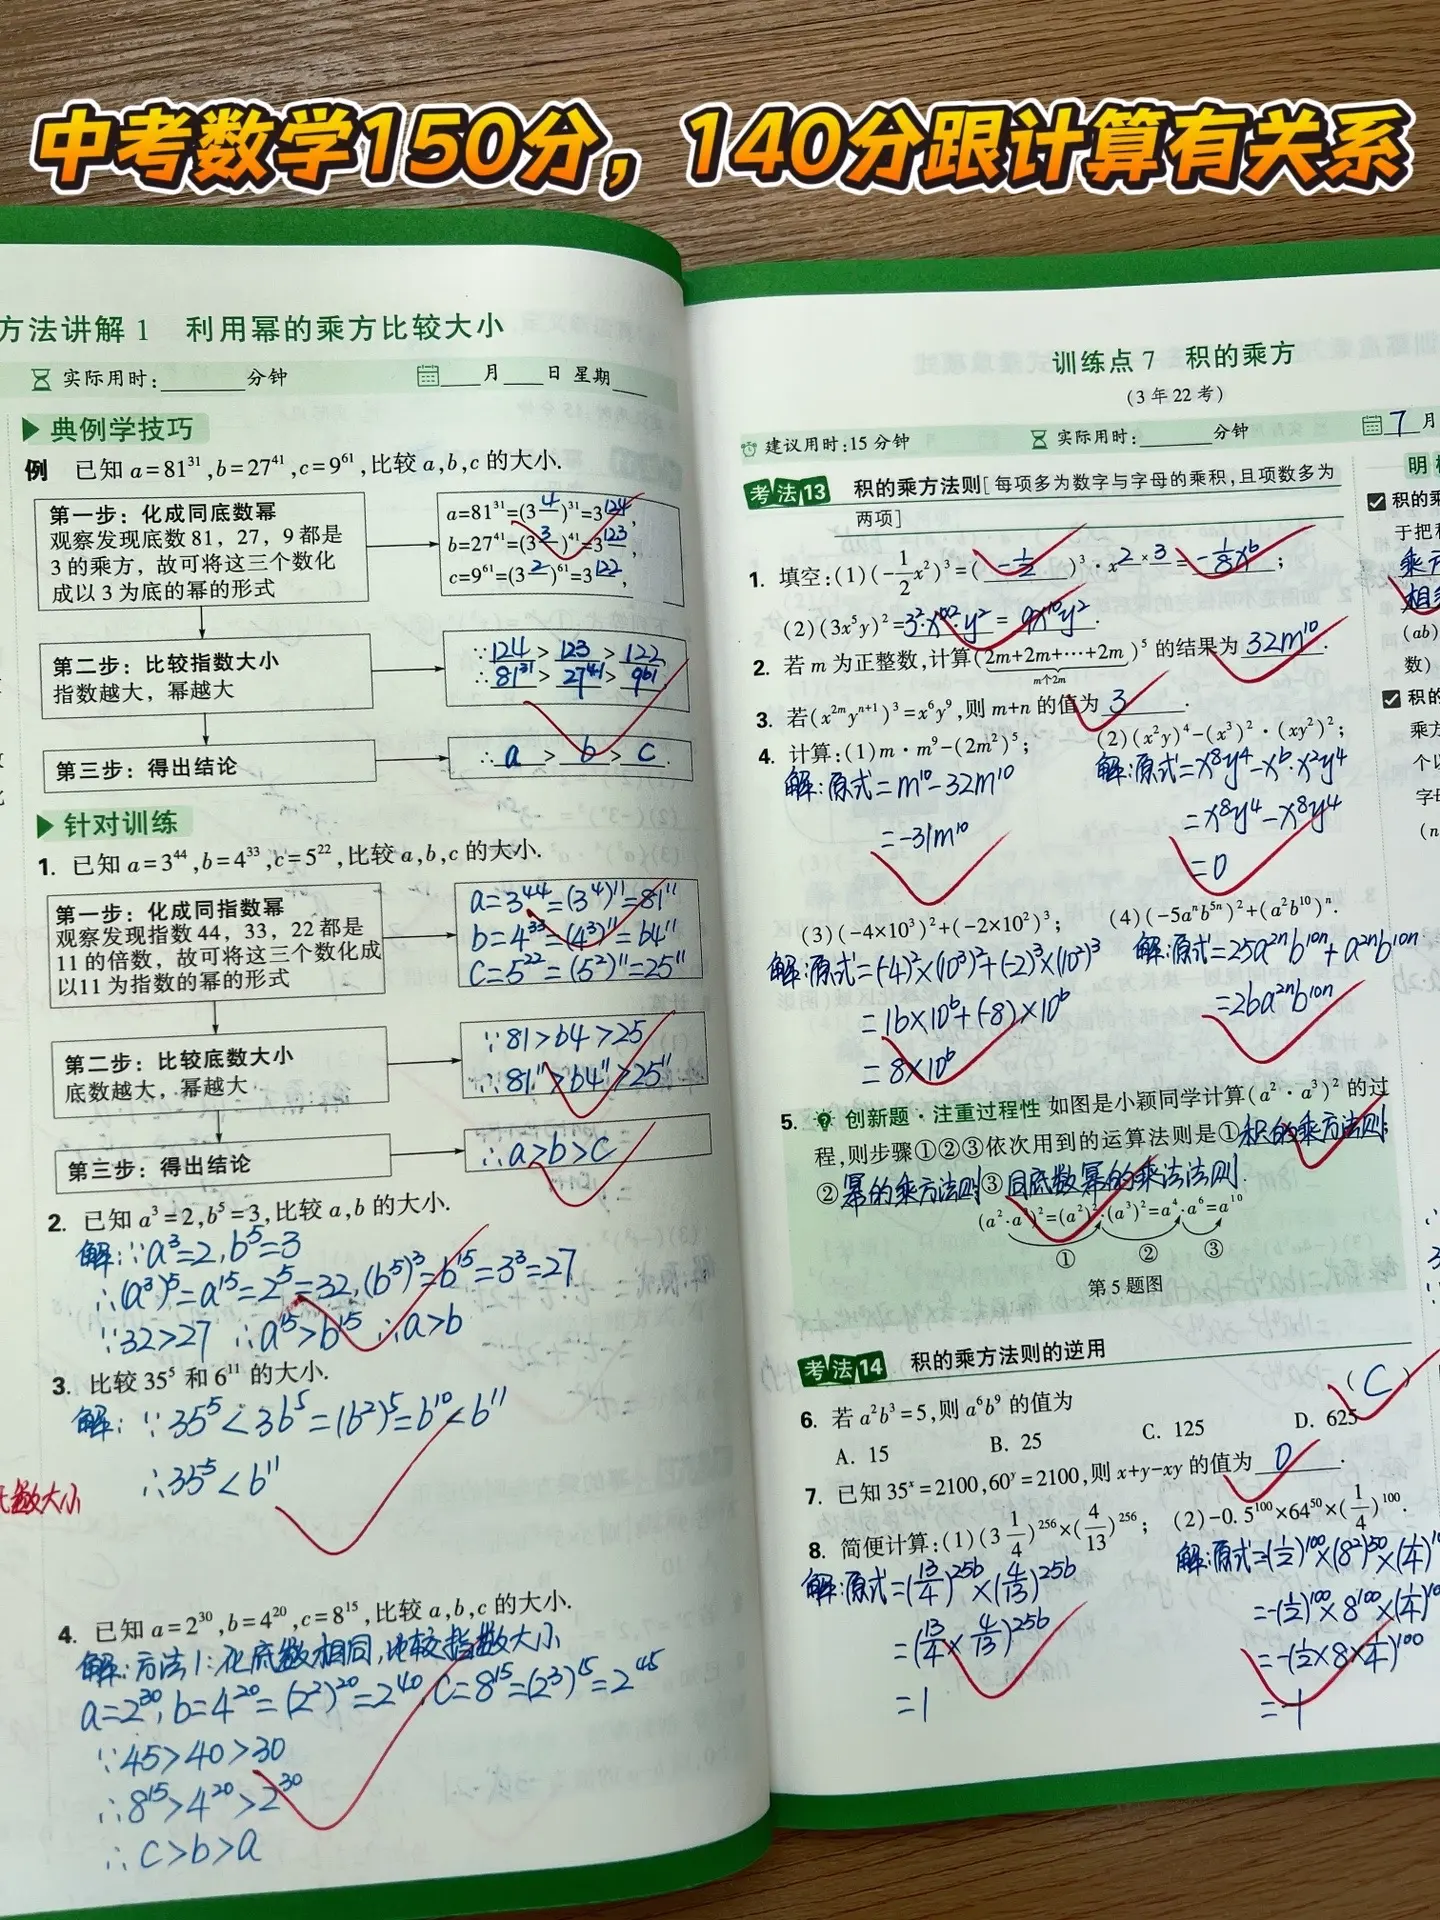 中考数学150分，140分跟计算有关系
方法讲解1 利用幂的乘方比较大小
实际用时:______分钟 ___月___日 星期___
典例学技巧
例 已知 a=81³¹,b=27⁴¹,c=9⁶¹,比较 a,b,c 的大小.
第一步：化成同底数幂
观察发现底数 81，27，9 都是
3 的乘方，故可将这三个数化
成以 3 为底的幂的形式
a=81³¹=(3⁴)³¹=3¹²⁴,
b=27⁴¹=(3³)⁴¹=3¹²³,
c=9⁶¹=(3²)⁶¹=3¹²²,
第二步：比较指数大小
指数越大，幂越大
∵124>123>122,
∴81³¹>27⁴¹>9⁶¹.
第三步：得出结论
∴a>b>c.
针对训练
1. 已知 a=3⁴⁴,b=4³³,c=5²²,比较 a,b,c 的大小.
第一步：化成同指数幂
观察发现指数 44，33，22 都是
11 的倍数，故可将这三个数化成
以11 为指数的幂的形式
a=3⁴⁴=(3⁴)¹¹=81¹¹
b=4³³=(4³)¹¹=64¹¹
c=5²²=(5²)¹¹=25¹¹
第二步：比较底数大小
底数越大，幂越大
∵81>64>25
∴81¹¹>64¹¹>25¹¹
第三步：得出结论
∴a>b>c
2. 已知 a³=2,b⁵=3,比较 a,b 的大小.
解:∵a³=2,b⁵=3
∴(a³)⁵=a¹⁵=2⁵=32,(b⁵)³=b¹⁵=3³=27
∵32>27 ∴a¹⁵>b¹⁵ ∴a>b
3. 比较 35⁵ 和 6¹¹ 的大小.
解:∵35⁵<36⁵=(6²)⁵=6¹⁰<6¹¹
∴35⁵<6¹¹
数大小
4. 已知 a=2³⁰,b=4²⁰,c=8¹⁵,比较 a,b,c 的大小.
解:方法1:化底数相同,比较指数大小
a=2³⁰,b=4²⁰=(2²)²⁰=2⁴⁰,c=8¹⁵=(2³)¹⁵=2⁴⁵
∵45>40>30
∴8¹⁵>4²⁰>2³⁰
∴c>b>a
训练点7 积的乘方
(3年22考)
建议用时:15分钟 实际用时:______分钟 7月
考法13 积的乘方法则[每项多为数字与字母的乘积,且项数多为
两项]
1. 填空:(1)(-1/2x²)³=(-1/2)³·x²ˣ³=-1/8x⁶;
(2)(3x⁵y)²=3²·x⁵ˣ²·y²=9x¹⁰y².
2. 若 m 为正整数,计算(2m+2m+⋯+2m)⁵的结果为32m¹⁰.
m个2m
3. 若(x²ᵐyⁿ⁺¹)³=x⁶y⁹,则 m+n 的值为3.
4. 计算:(1)m·m⁹-(2m²)⁵; (2)(x²y)⁴-(x³)²·(xy²)²;
解:原式=m¹⁰-32m¹⁰
=-31m¹⁰
解:原式=x⁸y⁴-x⁶·x²y⁴
=x⁸y⁴-x⁸y⁴
=0
(3)(-4×10³)²+(-2×10²)³; (4)(-5aⁿb⁵ⁿ)²+(a²b¹⁰)ⁿ.
解:原式=(-4)²×(10³)²+(-2)³×(10²)³
=16×10⁶+(-8)×10⁶
=8×10⁶
解:原式=25a²ⁿb¹⁰ⁿ+a²ⁿb¹⁰ⁿ
=26a²ⁿb¹⁰ⁿ
5. 创新题·注重过程性 如图是小颖同学计算(a²·a³)²的过
程,则步骤①②③依次用到的运算法则是①积的乘方法则;
②幂的乘方法则③同底数幂的乘法法则.
(a²·a³)²=(a²)²·(a³)²=a⁴·a⁶=a¹⁰
① ② ③
第5题图
考法14 积的乘方法则的逆用
6. 若 a²b³=5,则 a⁶b⁹ 的值为 (C)
A. 15 B. 25 C. 125 D. 625
7. 已知35ˣ=2100,60ʸ=2100,则 x+y-xy 的值为0.
8. 简便计算:(1)(3 1/4)²⁵⁶×(4/13)²⁵⁶; (2)-0.5¹⁰⁰×64⁵⁰×(1/4)¹⁰⁰.
解:原式=(13/4)²⁵⁶×(4/13)²⁵⁶
=(13/4×4/13)²⁵⁶
=1
解:原式=-(1/2)¹⁰⁰×(8²)⁵⁰×(1/4)
=-(1/2)¹⁰⁰×8¹⁰⁰×(1/4)
=-(1/2×8×1/4)¹⁰⁰
=-1
明
积的乘
于把积
乘方
(ab)
数)
积的
乘方
个以
字母
(n